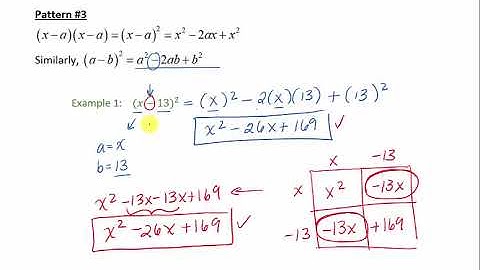 Pattern #3
(x−a)(x−a)=(x−a)²=x²−2ax+x²
Similarly, (a−b)²=a²−2ab+b²
Example 1: (x−13)² = (x)² − 2(x)(13) + (13)²
x² − 26x + 169 ✓
a=x
b=13
x −13
x² −13x −13x +169 ←
x x² −13x
x² − 26x + 169 ✓
−13 −13x +169